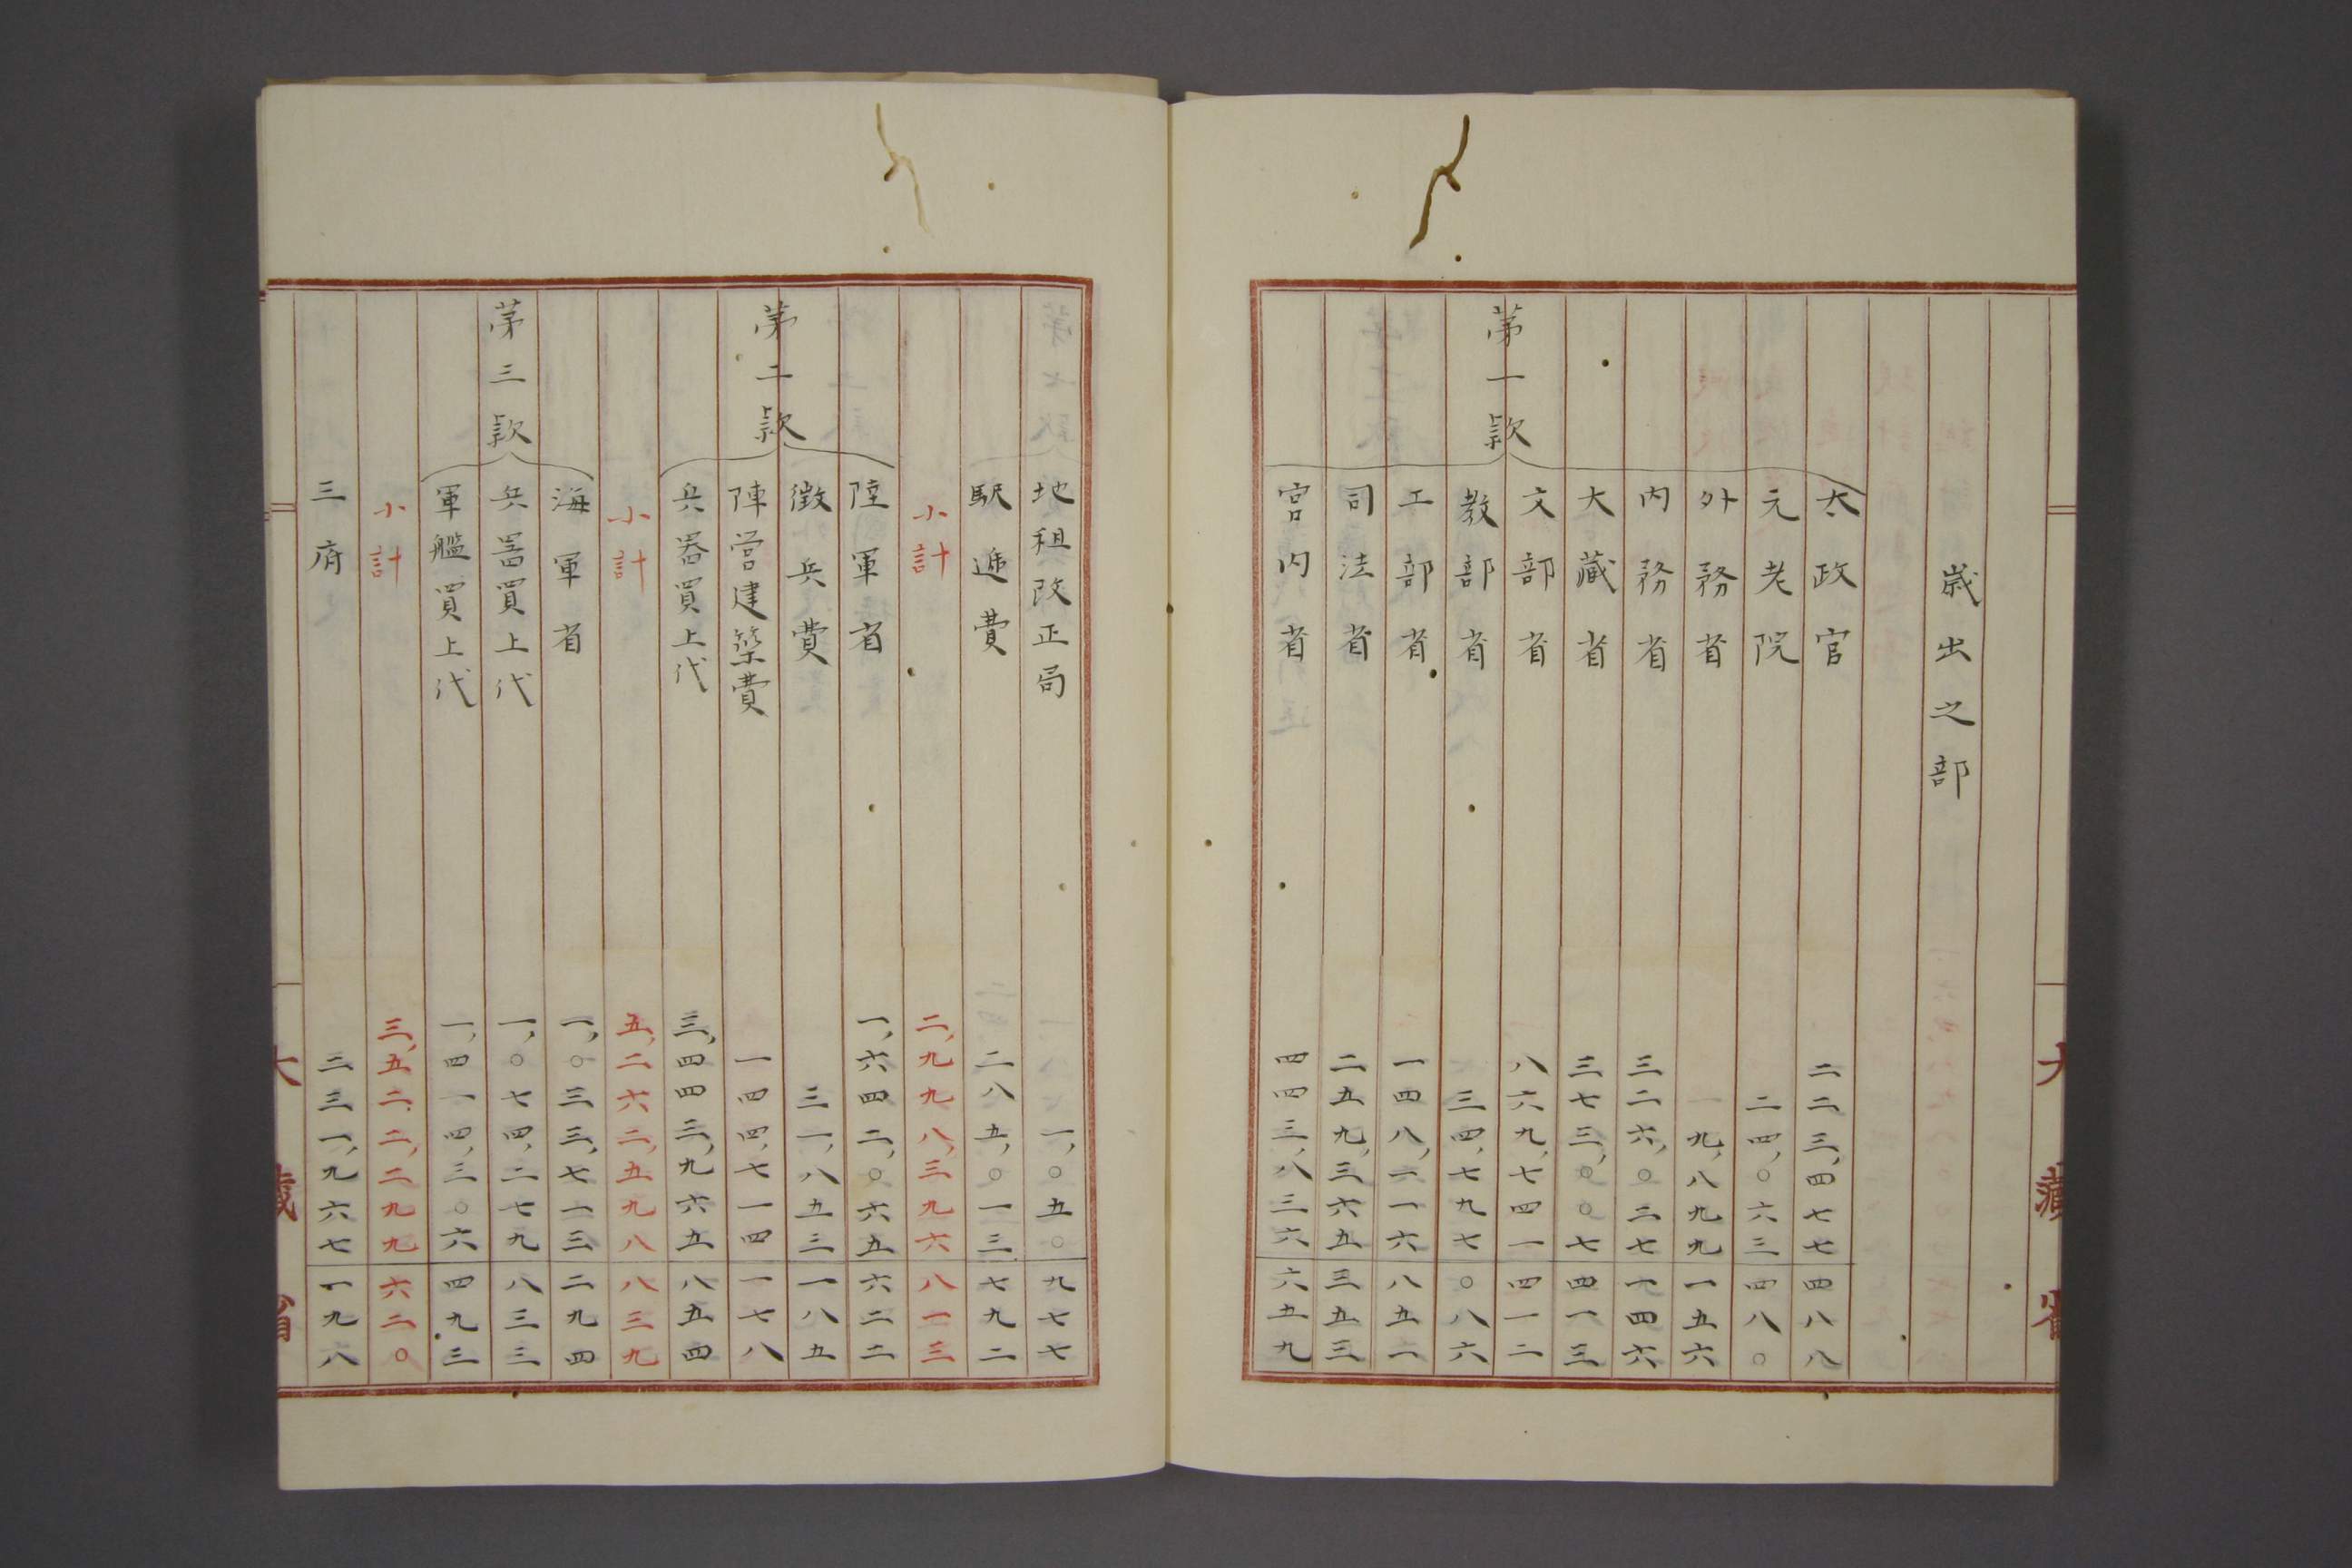 歳出之部
第一款
太政官 二二三,四七七 四八八
元老院 二四,〇六三 四八〇
外務省 九,八九九 一五六
内務省 三二六,〇二七 一四六
大藏省 三七三,〇〇七 四一三
文部省 八六九,七四一 四一二
教部省 三四,七九七 〇八六
工部省 一四八,一一六 八五一
司法省 二五九,三六五 三五三
宮内省 四四三,八三六 六五九
大藏省
地租改正局 一,〇五〇 九七七
駅逓費 二八五,〇一三 七九二
小計 二,九九八,三九六 八一三
第二款
陸軍省 一,六四二,〇六五 六二二
徴兵費 三一,八五三 一八五
陣営建築費 一四四,七一四 一七八
兵器買上代 三,四四三,九六五 八五四
小計 五,二六二,五九八 八三九
第三款
海軍省 一,〇三三,七一三 二九四
兵器買上代 一,〇七四,二七九 八三三
軍艦買上代 一,四一四,三〇六 四九三
小計 三,五二二,二九九 六二〇
三府 三三一,九六七 一九八
大藏省